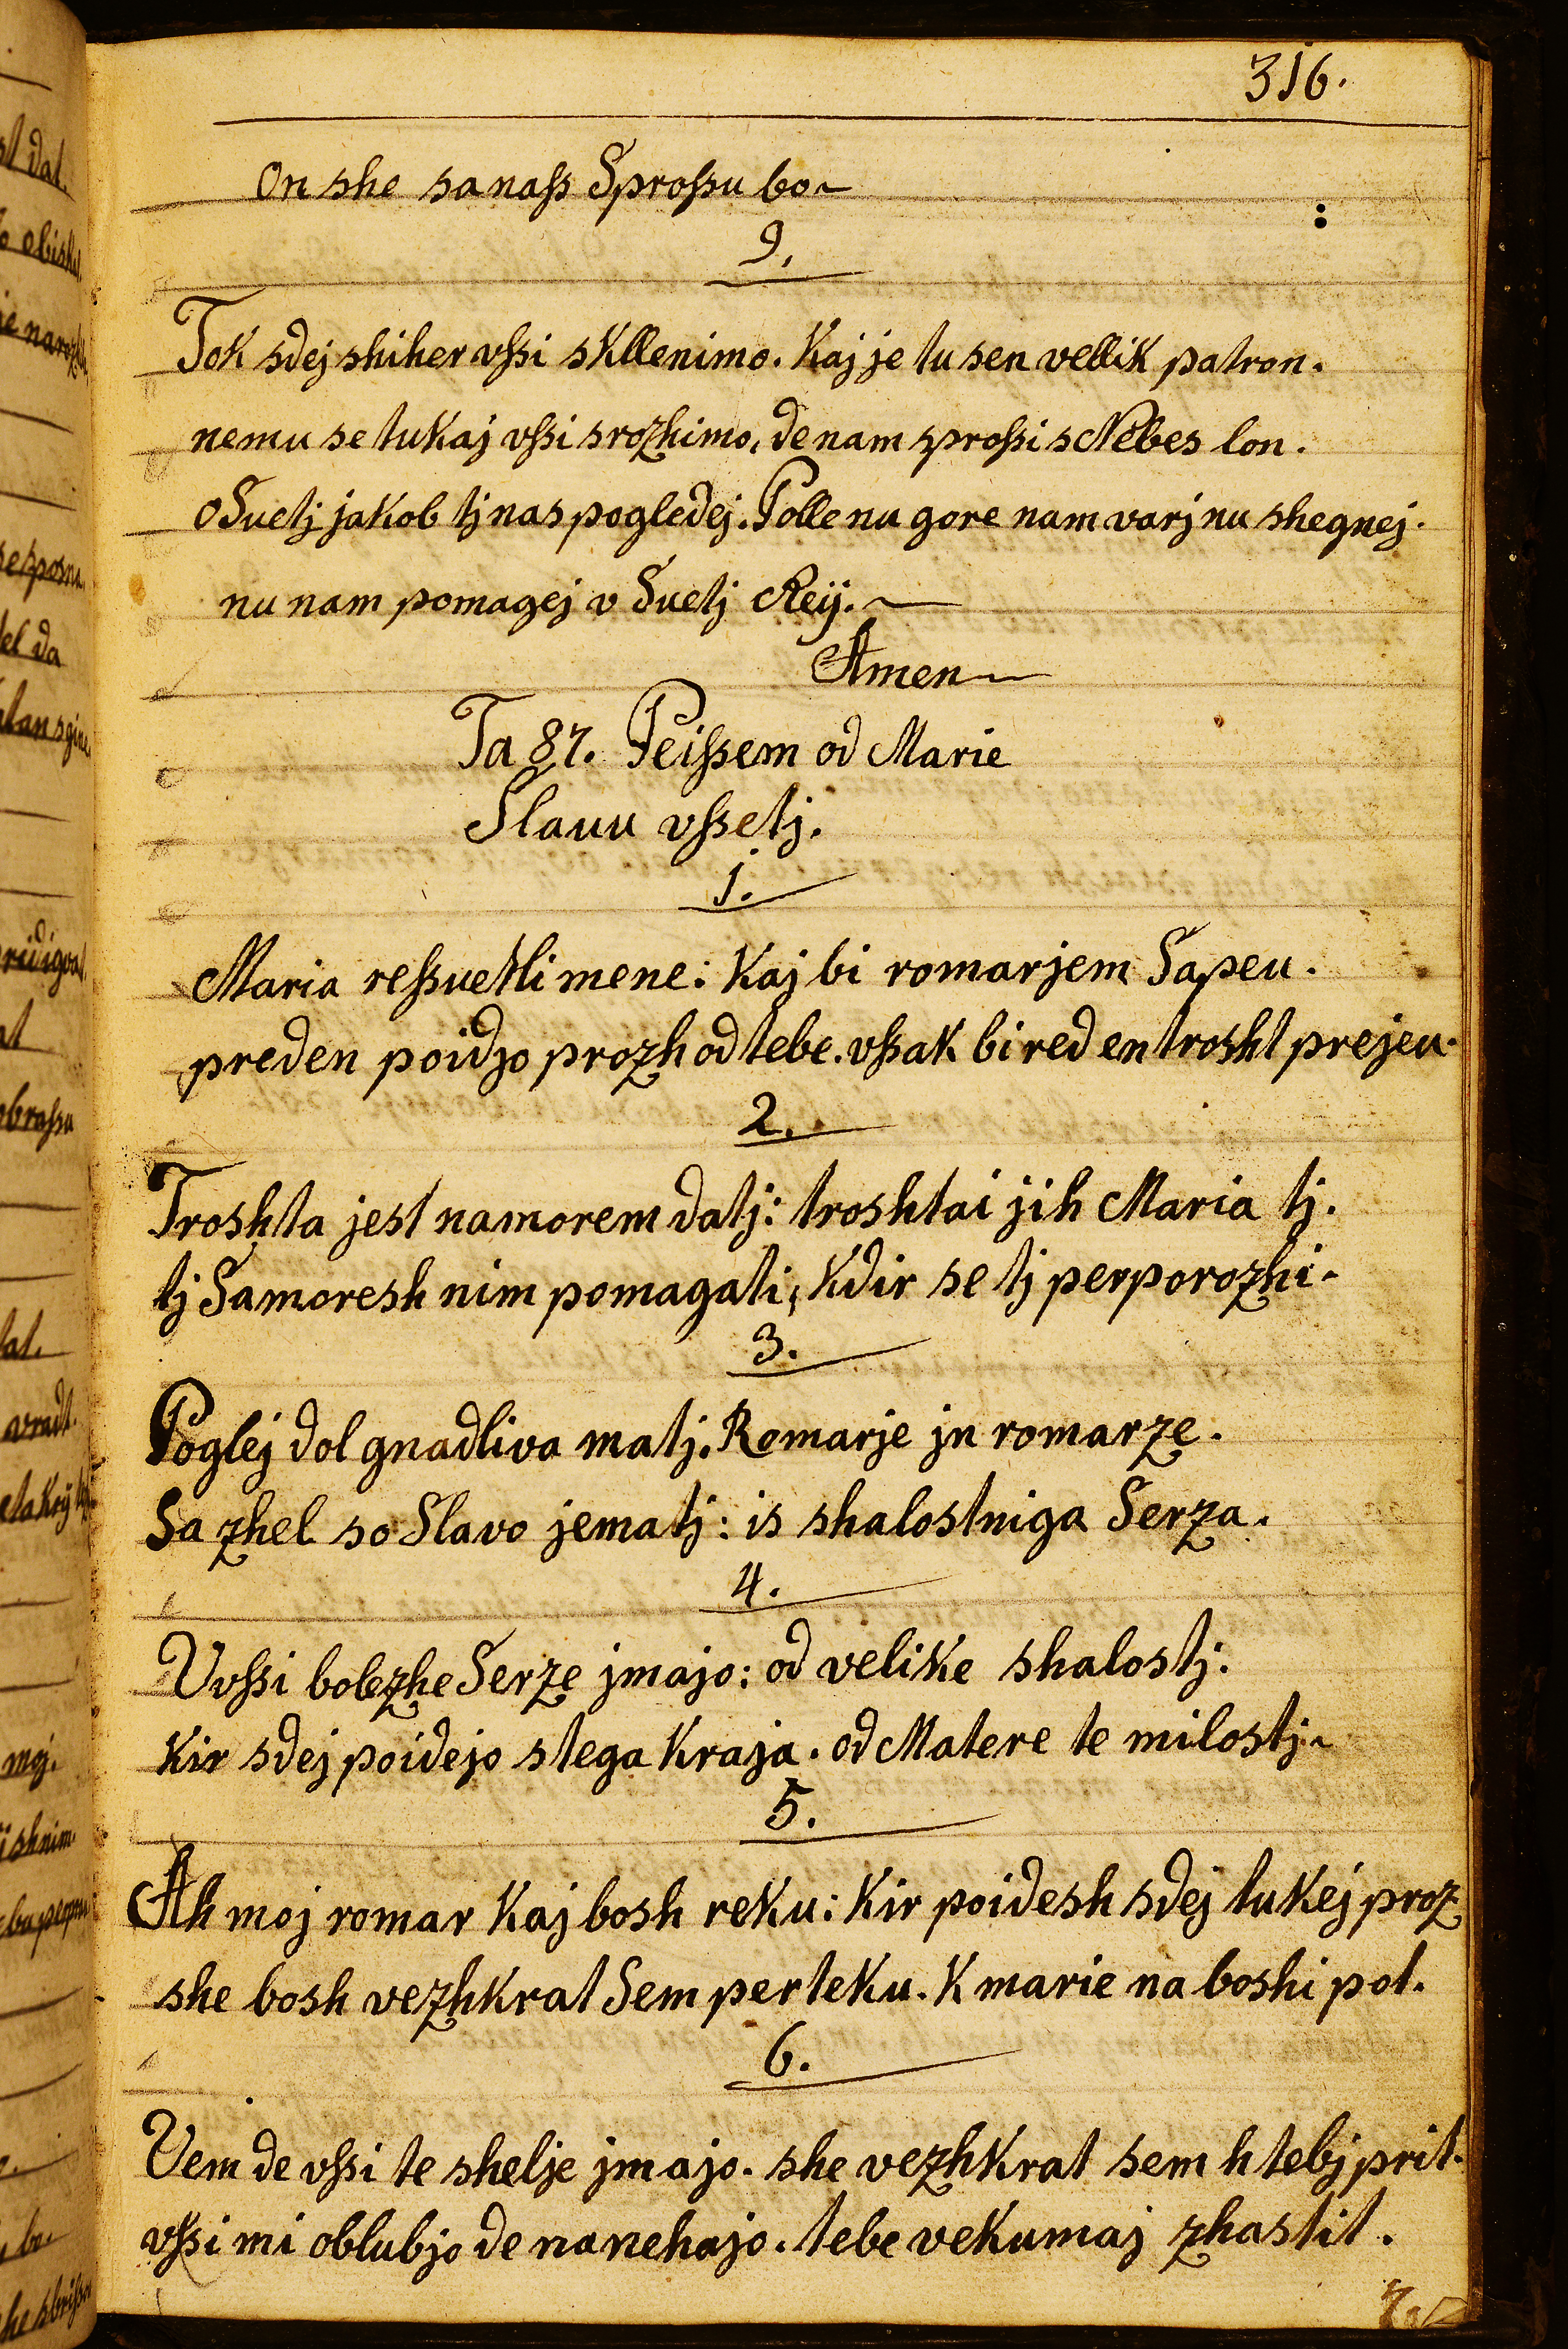 316.
On she sa naſs Sproſsu bo
9.
Tok sdej shiher vſsi skllenimo. Kaj je tu sen vellik patron.
nemu se tukaj vſsi srozhimo, de nam sproſsi s Nebes lon.
O Suetj jakob tj nas pogledej. Polle nu gore nam varj nu shegnej.
nu nam pomagej v Suetj Reij.
Amen
Ta 87. Peiſsem od Marie
Slauu vſsetj.
1.
Maria reſsuetli mene: Kaj bi romarjem Sapeu.
preden poidjo prozh od tebe. vſsak bi red en trosht prejeu.
2.
Troshta jest namorem datj: troshtai jih Maria tj.
tj Samoresh nim pomagati, Kdir se tj perporozhi
3.
Poglej dol gnadliva matj. Romarje jn romarze.
Sa zhel so Slavo jematj: is shalostniga Serza.
4.
Vvſsi bolezhe Serze jmajo: od velike shalostj.
Kir sdej poidejo stega Kraja. od Matere te milostj
5.
Ah moj romar Kaj bosh reku: Kir poidesh sdej tukej proz
she bosh vezhkrat Sem perteku. K marie na boshi pot.
6.
Vem de vſsi te shelje jmajo. she vezhkrat sem h tebj prit.
vſsi mi oblubjo de nanehajo. tebe vekumaj zhastit.